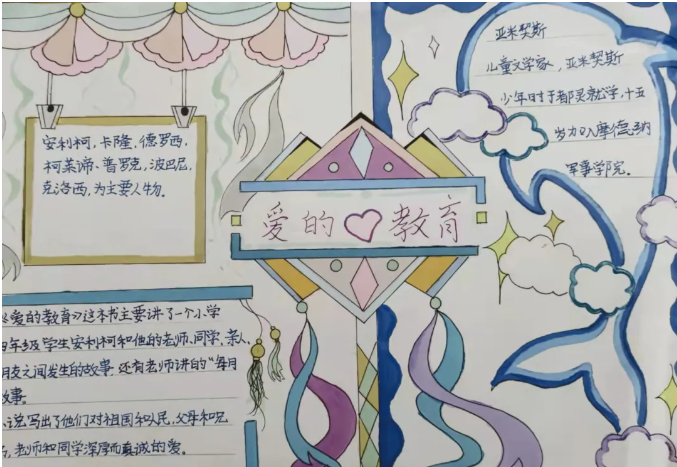 安利柯,卡隆,德罗西,
柯莱谛、普罗克,波巴尼,
克洛西,为主要人物。
爱的教育
亚米契斯
儿童文学家,亚米契斯
少年时于都灵就学,十五
岁加入摩德纳
军事学院。
《爱的教育》这本书主要讲了一个小学
四年级学生安利柯和他的老师、同学、亲人、
朋友之间发生的故事.还有老师讲的“每月
故事
小说写出了他们对祖国和人民,父母和兄
老师和同学深厚而真诚的爱。